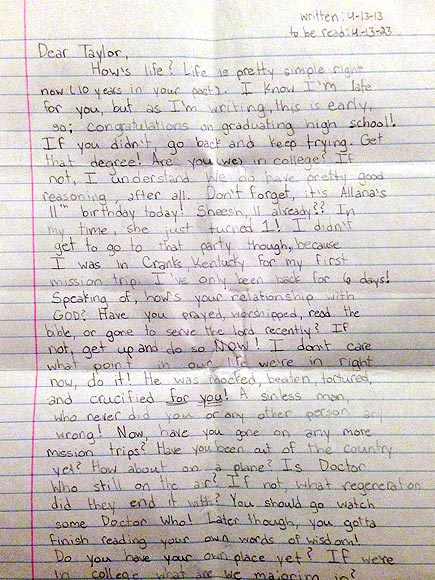 written: 4-13-13
to be read: 4-13-23
Dear Taylor,
How's life? Life is pretty simple right
now (10 years in your past). I know I'm late
for you, but as I'm writing, this is early,
so; congratulations on graduating high school!
If you didn't, go back and keep trying. Get
that degree! Are you (we) in college? If
not, I understand. We do have pretty good
reasoning, after all. Don't forget, it's Allana's
11th birthday today! Sheesh, 11 already?? In
my time, she just turned 1! I didn't
get to go to that party though, because
I was in Cranks, Kentucky for my first
mission trip. I've only been back for 6 days!
Speaking of, how's your relationship with
GOD? Have you prayed, worshipped, read the
bible, or gone to serve the lord recently? If
not, get up and do so NOW! I don't care
what point in our life we're in right
now, do it! He was mocked, beaten, tortured,
and crucified for you! A sinless man,
who never did you or any other person any
wrong! Now, have you gone on any more
mission trips? Have you been out of the country
yet? How about on a plane? Is Doctor
Who still on the air? If not, what regeneration
did they end it with? You should go watch
some Doctor Who! Later though, you gotta
finish reading your own words of wisdom!
Do you have your own place yet? If we're
in college what are we majoring in?